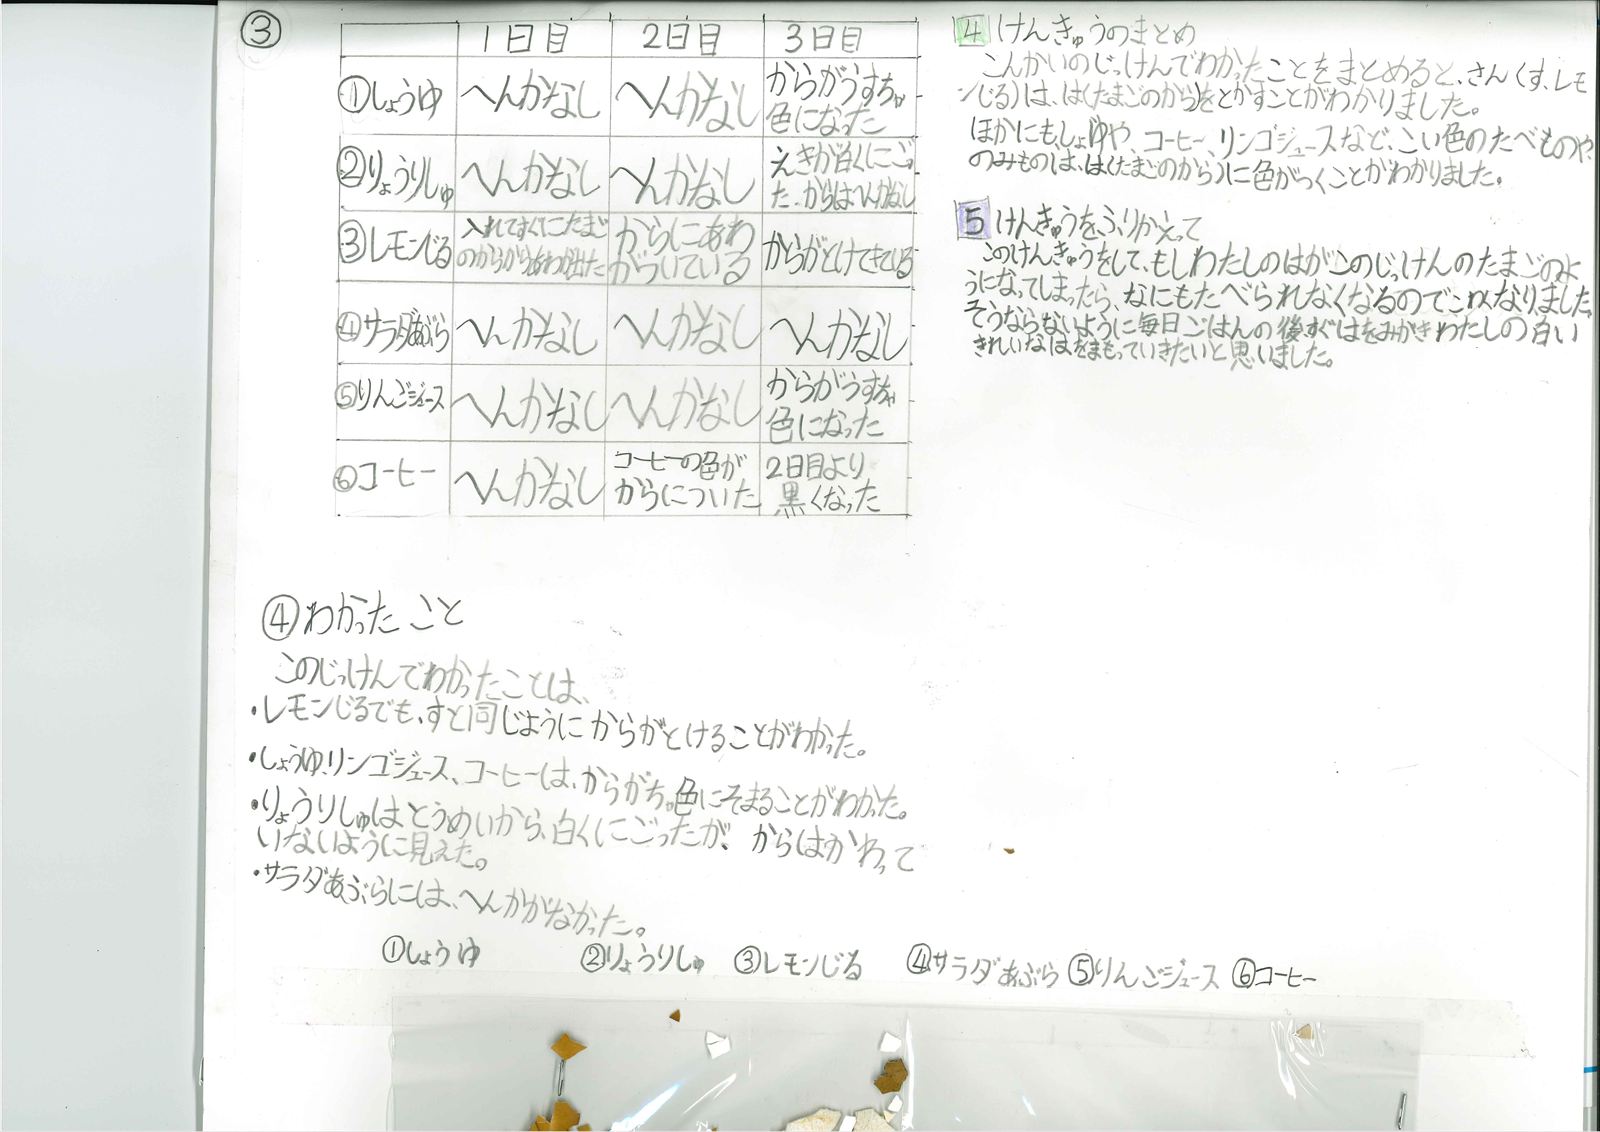 ③
1日目 2日目 3日目
①しょうゆ へんかなし へんかなし からがうすちゃ色になった
②りょうりしゅ へんかなし へんかなし えきが白くにごった.からはへんかなし
③レモンじる 入れてすぐにたまごのからからあわが出た からにあわがついている からがとけてきている
④サラダあぶら へんかなし へんかなし へんかなし
⑤りんごジュース へんかなし へんかなし からがうすちゃ色になった
⑥コーヒー へんかなし コーヒーの色がからについた 2日目より黒くなった
④わかったこと
このじっけんでわかったことは、
・レモンじるでも、すと同じようにからがとけることがわかった。
・しょうゆ、リンゴジュース、コーヒーは、からがちゃ色にそまることがわかった。
・りょうりしゅは、とうめいから、白くにごったが、からはかわって
いないように見えた。
・サラダあぶらには、へんかがなかった。
①しょうゆ ②りょうりしゅ ③レモンじる ④サラダあぶら ⑤りんごジュース ⑥コーヒー
4 けんきゅうのまとめ
こんかいのじっけんでわかったことをまとめると、さん(す、レモ
ンじる)は、は(たまごのから)をとかすことがわかりました。
ほかにも、しょうゆや、コーヒー、リンゴジュースなど、こい色のたべものや、
のみものは、は(たまごのから)に色がつくことがわかりました。
5 けんきゅうをふりかえって
このけんきゅうをして、もしわたしのはがこのじっけんのたまごのよ
うになってしまったら、なにもたべられなくなるのでこわくなりました。
そうならないように毎日ごはんの後すぐはをみがきわたしの白い
きれいなはをまもっていきたいと思いました。